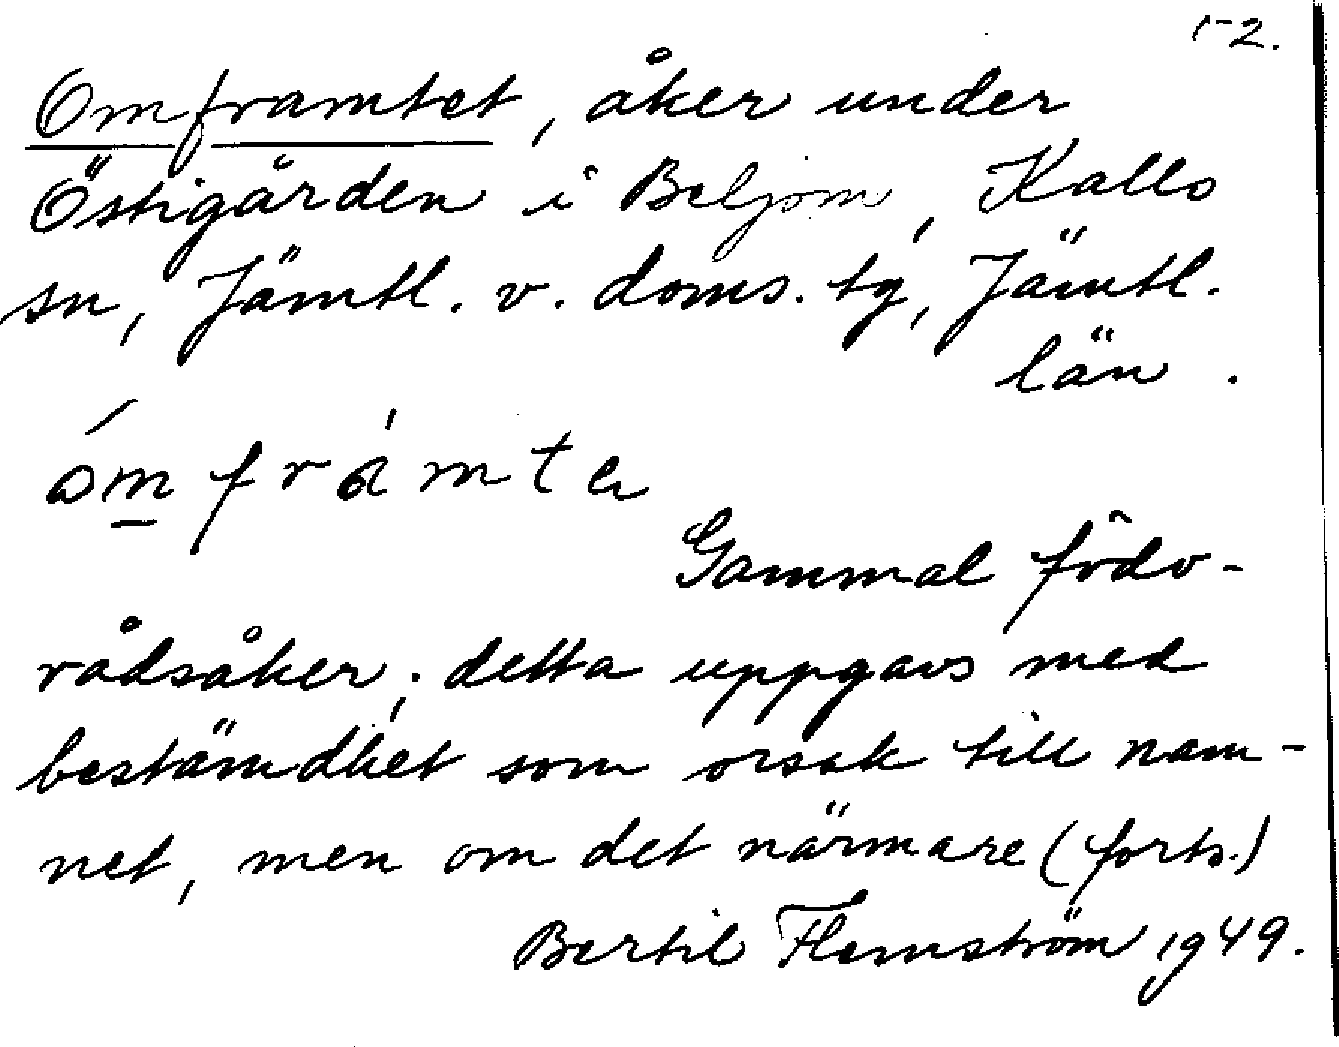 1-2.
Omframtet, åker under
Östigården i Beljom, Kalls
sn, Jämtl. v. doms. tg, Jämtl.
län.
ómfrámte
Gammal födo-
rådsåker; detta uppgavs med
bestämdhet som orsak till nam-
net, men om det närmare (forts.)
Bertil Flemström 1949.